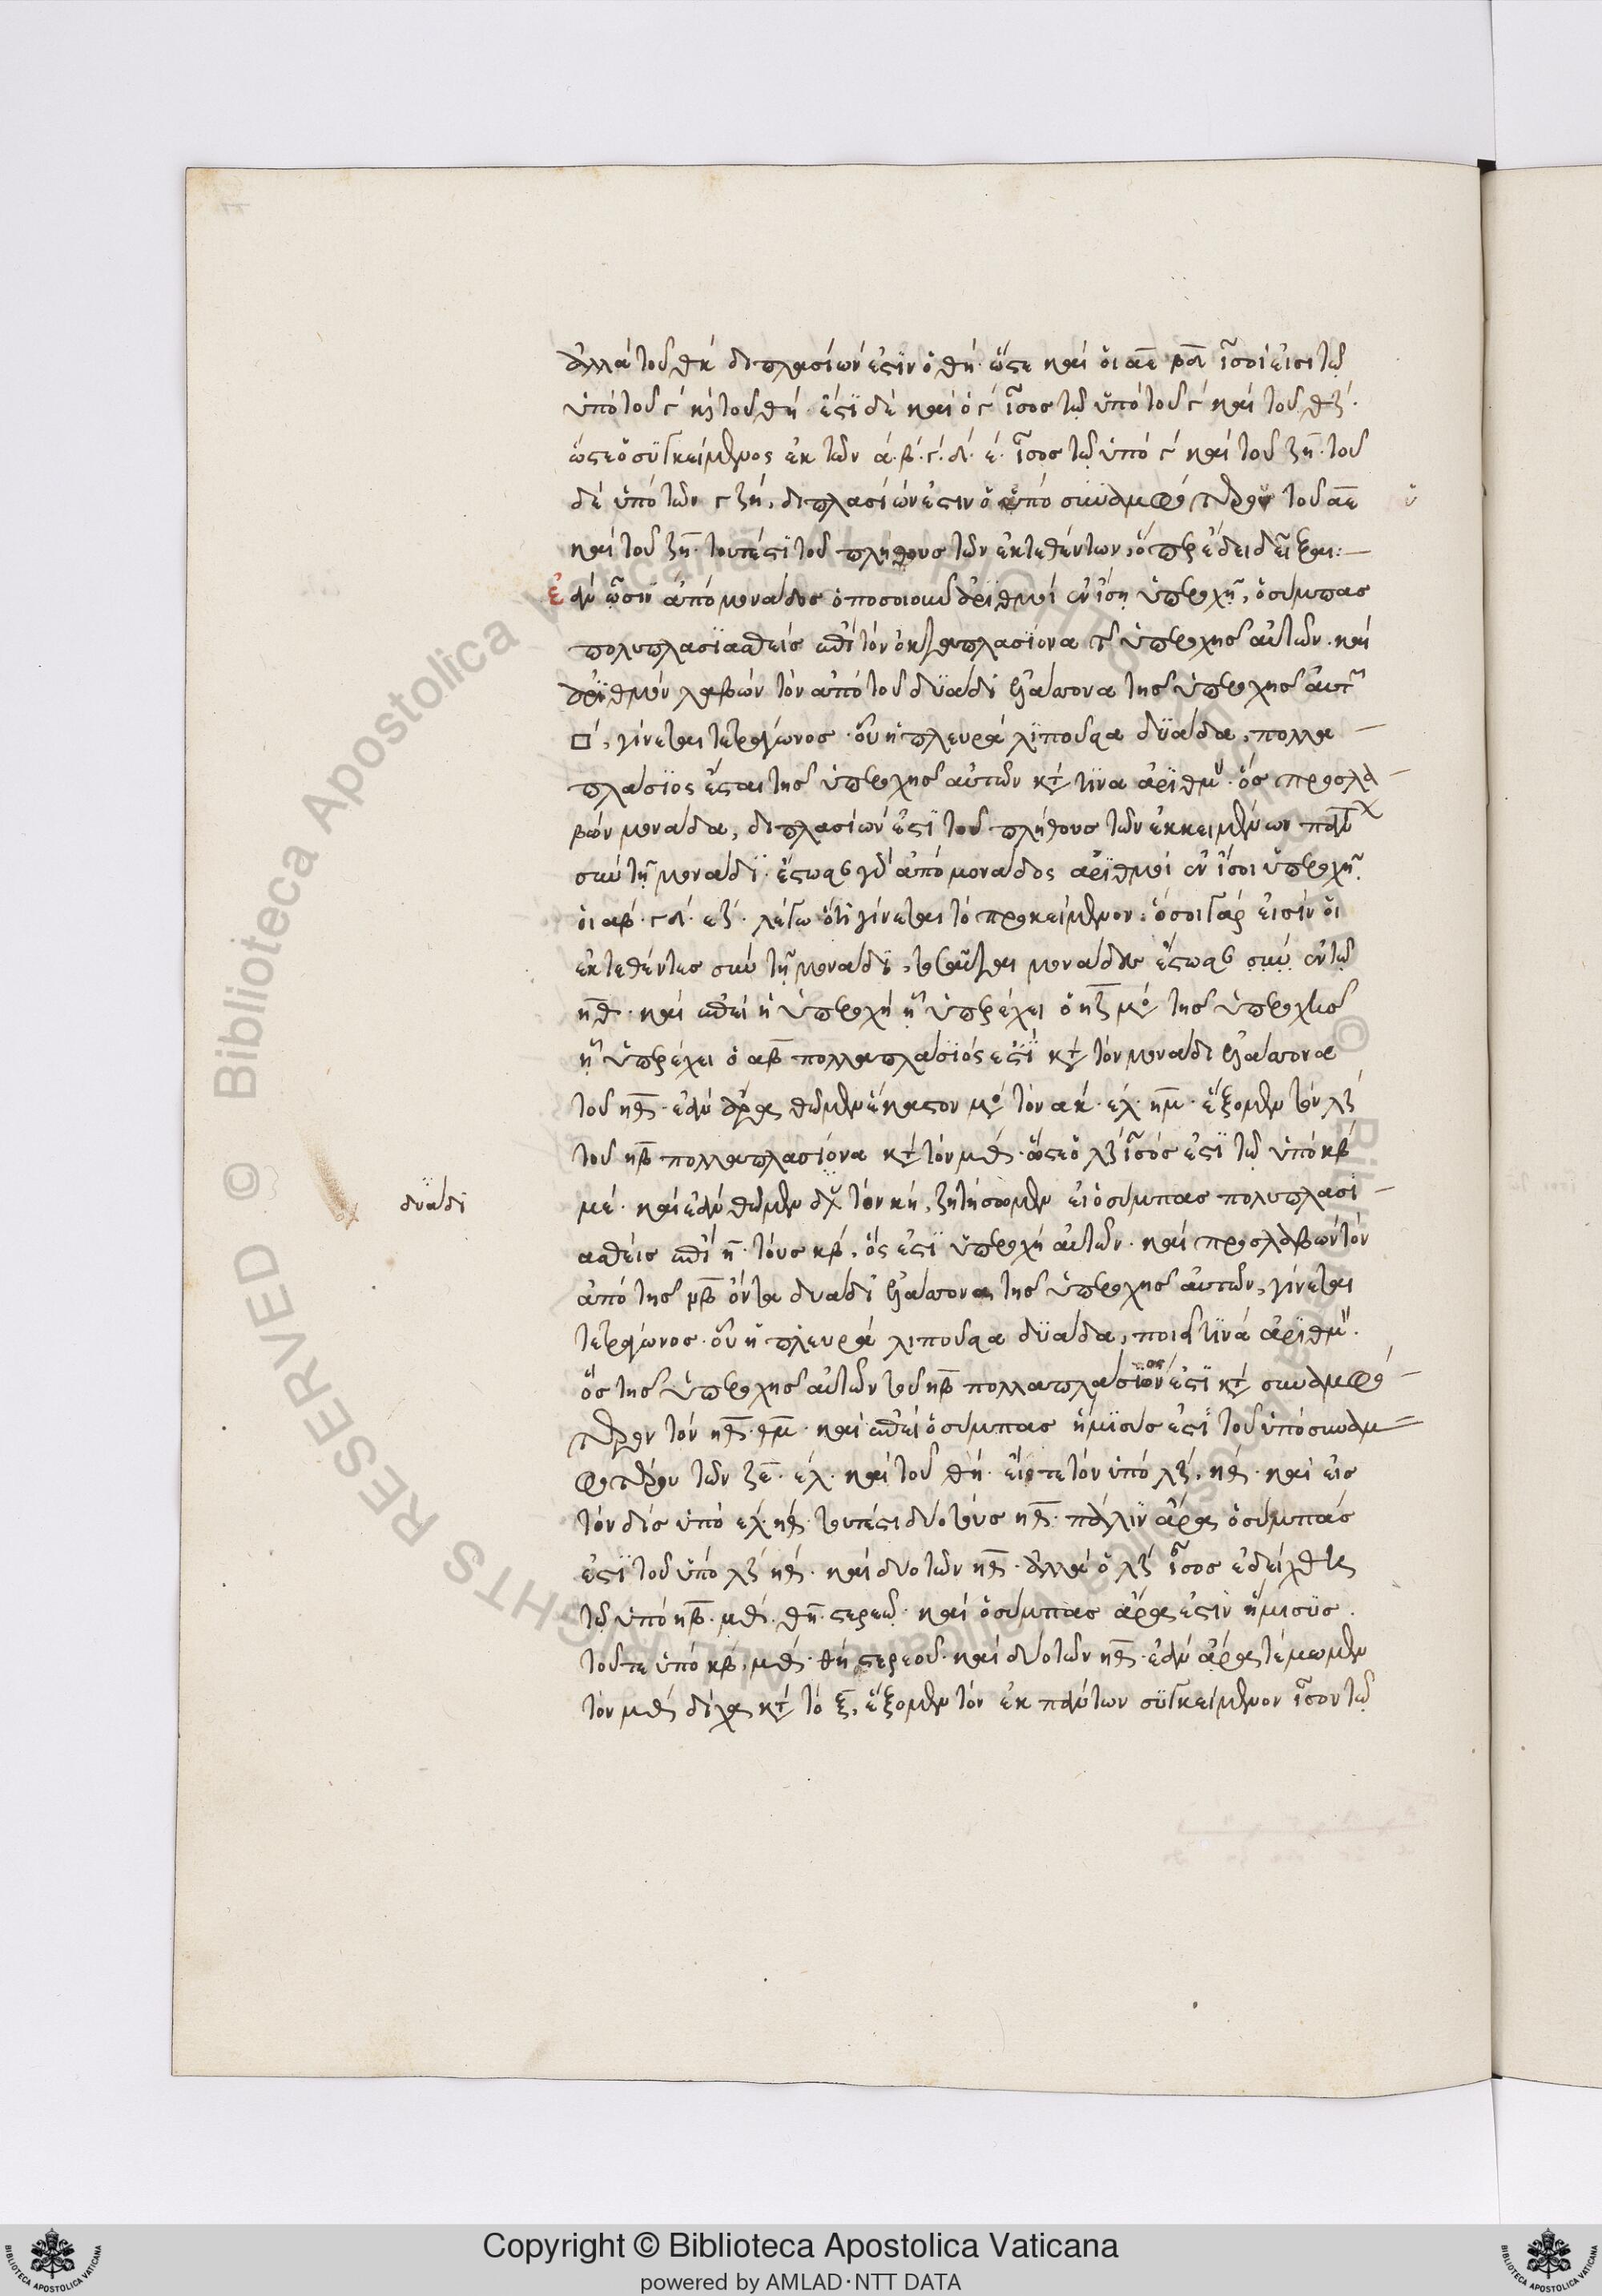 ἀλλὰ τοῦ θκ διπλασίων ἐστὶν ὁ θη· ὥστε καὶ οἱ αε βδ ἴσοί εἰσι τῷ
ὑπὸ τοῦ γ καὶ τοῦ θη· ἔστι δὲ καὶ ὁ γ ἴσος τῷ ὑπὸ τοῦ γ καὶ τοῦ θζ·
ὥστε ὁ συγκείμενος ἐκ τῶν α· β· γ· δ· ε· ἴσος τῷ ὑπὸ γ καὶ τοῦ ζη· τοῦ
δὲ ὑπὸ τῶν γ ζη, διπλασίων ἐστὶν ὁ ὑπὸ συναμφοτέρου τοῦ αε
καὶ τοῦ ζη· τουτέστι τοῦ πλήθους τῶν ἐκτεθέντων, ὅπερ ἔδει δεῖξαι:—
ἐὰν ὦσιν ἀπὸ μονάδος ὁποσοιοῦν ἀριθμοὶ ἐν ἴσῃ ὑπεροχῇ, ὁ σύμπας
πολυπλασιασθεὶς ἐπὶ τὸν ὀκταπλασίονα τῆς ὑπεροχῆς αὐτῶν· καὶ
ἀριθμὸν λαβὼν τὸν ἀπὸ τοῦ δυάδι ἐλάσσονα τῆς ὑπεροχῆς αὐτῶν
□, γίνεται τετράγωνος· οὗ ἡ πλευρὰ λιποῦσα δυάδα, πολλα
πλάσιος ἔσται τῆς ὑπεροχῆς αὐτῶν κατά τινα ἀριθμόν· ὃς προσλα
βὼν μονάδα, διπλασίων ἐστὶ τοῦ πλήθους τῶν ἐκκειμένων πάντων
σὺν τῇ μονάδι· ἔστωσαν γὰρ ἀπὸ μονάδος ἀριθμοὶ ἐν ἴσῃ ὑπεροχῇ
οἱ αβ· γδ· εζ· λέγω ὅτι γίνεται τὸ προκείμενον· ὅσοι γάρ εἰσιν οἱ
ἐκτεθέντες σὺν τῇ μονάδι, τοσαῦται μονάδες ἔστωσαν σὺν ἐν τῷ
ηθ· καὶ ἐπεὶ ἡ ὑπεροχὴ ᾗ ὑπερέχει ὁ ηζ μο τῆς ὑπεροχῆς
ᾗ ὑπερέχει ὁ αβ πολλαπλάσιός ἐστι κατὰ τὸν μονάδι ἐλάσσονα
τοῦ ηθ· ἐὰν ἄρα θῶμεν ἕκαστον μο τὸν ακ· ελ· ημ· ἕξομεν τὸν λζ
τοῦ κβ πολλαπλασίονα κατὰ τὸν μθ· ὥστε ὁ λζ ἴσος ἐστὶ τῷ ὑπὸ κβ
δυάδι
μθ· καὶ ἐὰν θῶμεν δυ τὸν κη, ζητήσωμεν εἰ ὁ σύμπας πολυπλασι
ασθεὶς ἐπὶ η· τοὺς κβ, ὅς ἐστι ὑπεροχὴ αὐτῶν· καὶ προσλαβὼν τὸν
ἀπὸ τῆς κβ ὄντα δυάδι ἐλάσσονα τῆς ὑπεροχῆς αὐτῶν, γίνεται
τετράγωνος· οὗ ἡ πλευρὰ λιποῦσα δυάδα, ποιεῖ τινὰ ἀριθμόν·
ὃς τῆς ὑπεροχῆς αὐτῶν τοῦ κβ πολλαπλάσιός ἐστι κατὰ συναμφό
τερον τὸν ηθ· θμ· καὶ ἐπεὶ ὁ σύμπας ἥμισύς ἐστι τοῦ ὑπὸ συναμ
φοτέρου τῶν ζε· ελ· καὶ τοῦ θη· εἴς τε τὸν ὑπὸ λζ· ηθ· καὶ εἰς
τὸν δὶς ὑπὸ ελ· ηθ· τουτέστι δύο τοὺς ηθ· πάλιν ἄρα ὁ σύμπας
ἐστὶ τοῦ ὑπὸ λζ ηθ· καὶ δύο τῶν ηθ· ἀλλὰ ὁ λζ ἴσος ἐδείχθη
τῷ ὑπὸ κβ· μθ· θη· στερεῷ· καὶ ὁ σύμπας ἄρα ἐστὶν ἥμισυς
τοῦ τε ὑπὸ κβ· μθ· θη στερεοῦ· καὶ δύο τῶν ηθ· ἐὰν ἄρα τέμωμεν
τὸν μθ δίχα κατὰ τὸ ξ, ἕξομεν τὸν ἐκ πάντων συγκείμενον ἴσον τῷ
Copyright © Biblioteca Apostolica Vaticana
powered by AMLAD·NTT DATA